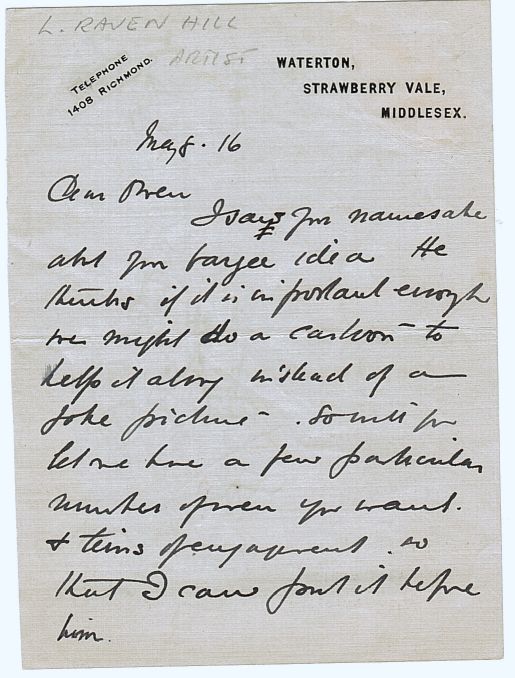 L. RAVEN HILL
ARTIST
TELEPHONE
1408 RICHMOND.
WATERTON,
STRAWBERRY VALE,
MIDDLESEX.
May 8. 16
Dear Owen
I saw your namesake
abt your bargee idea He
thinks if it is important enough
we might do a cartoon to
help it along instead of a
joke picture. So will you
let me have a few particulars
number of men you want.
& terms of engagement. so
that I can put it before
him.